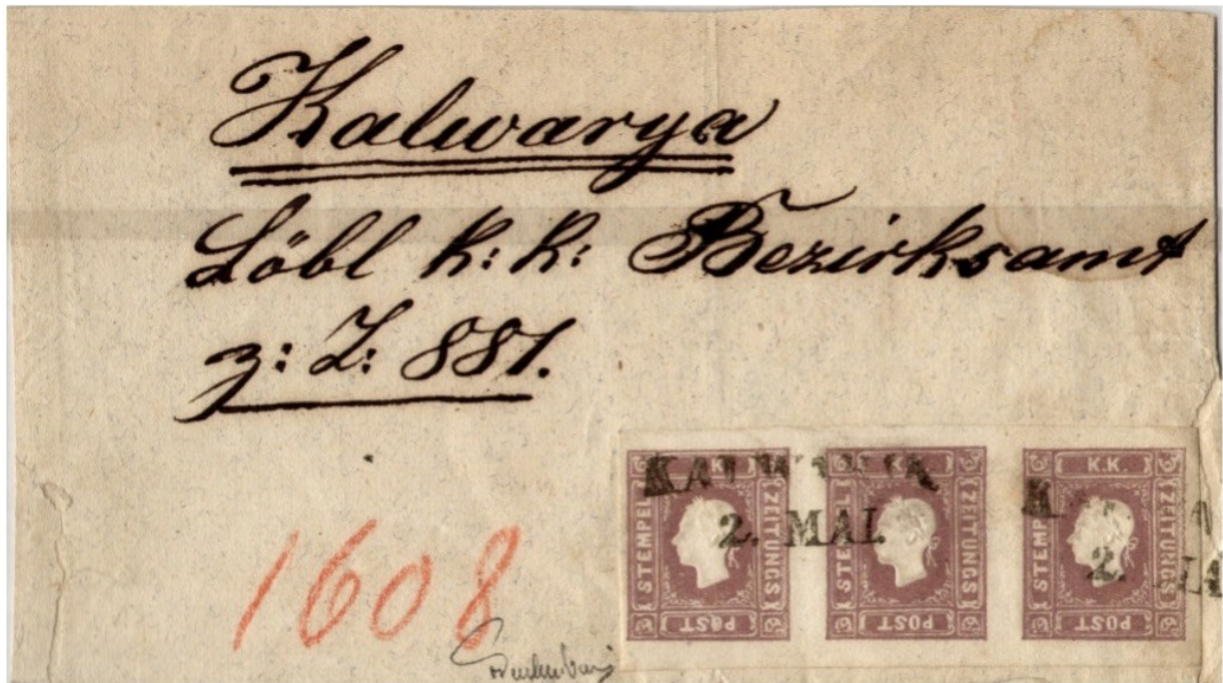 Kalwarya
Löbl k: k: Bezirksamt
z: Z: 881.
1608
K.K.
ZEITUNGS
POST
STEMPEL
ZEITUNGS
POST
STEMPEL
K.K.
ZEITUNGS
POST
STEMPEL
2. MAI.
2.